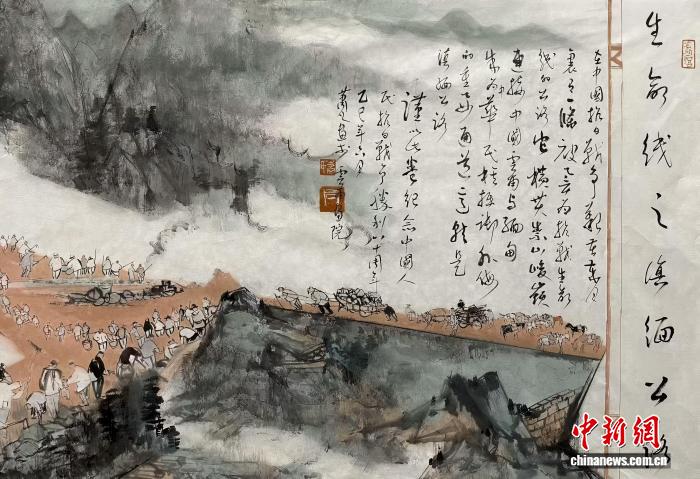 生命线之滇缅公路
在中国抗日战争艰苦岁月
里有一条被誉为抗战生命
线的公路它横贯崇山峻岭
连接中国云南与缅甸
成为华民族抵御外侮
的重要通道这就是
滇缅公路
谨以此卷纪念中国人
民抗日战争胜利八十周年
乙巳年六月
于云南画院
中新网
chinanews.com.cn